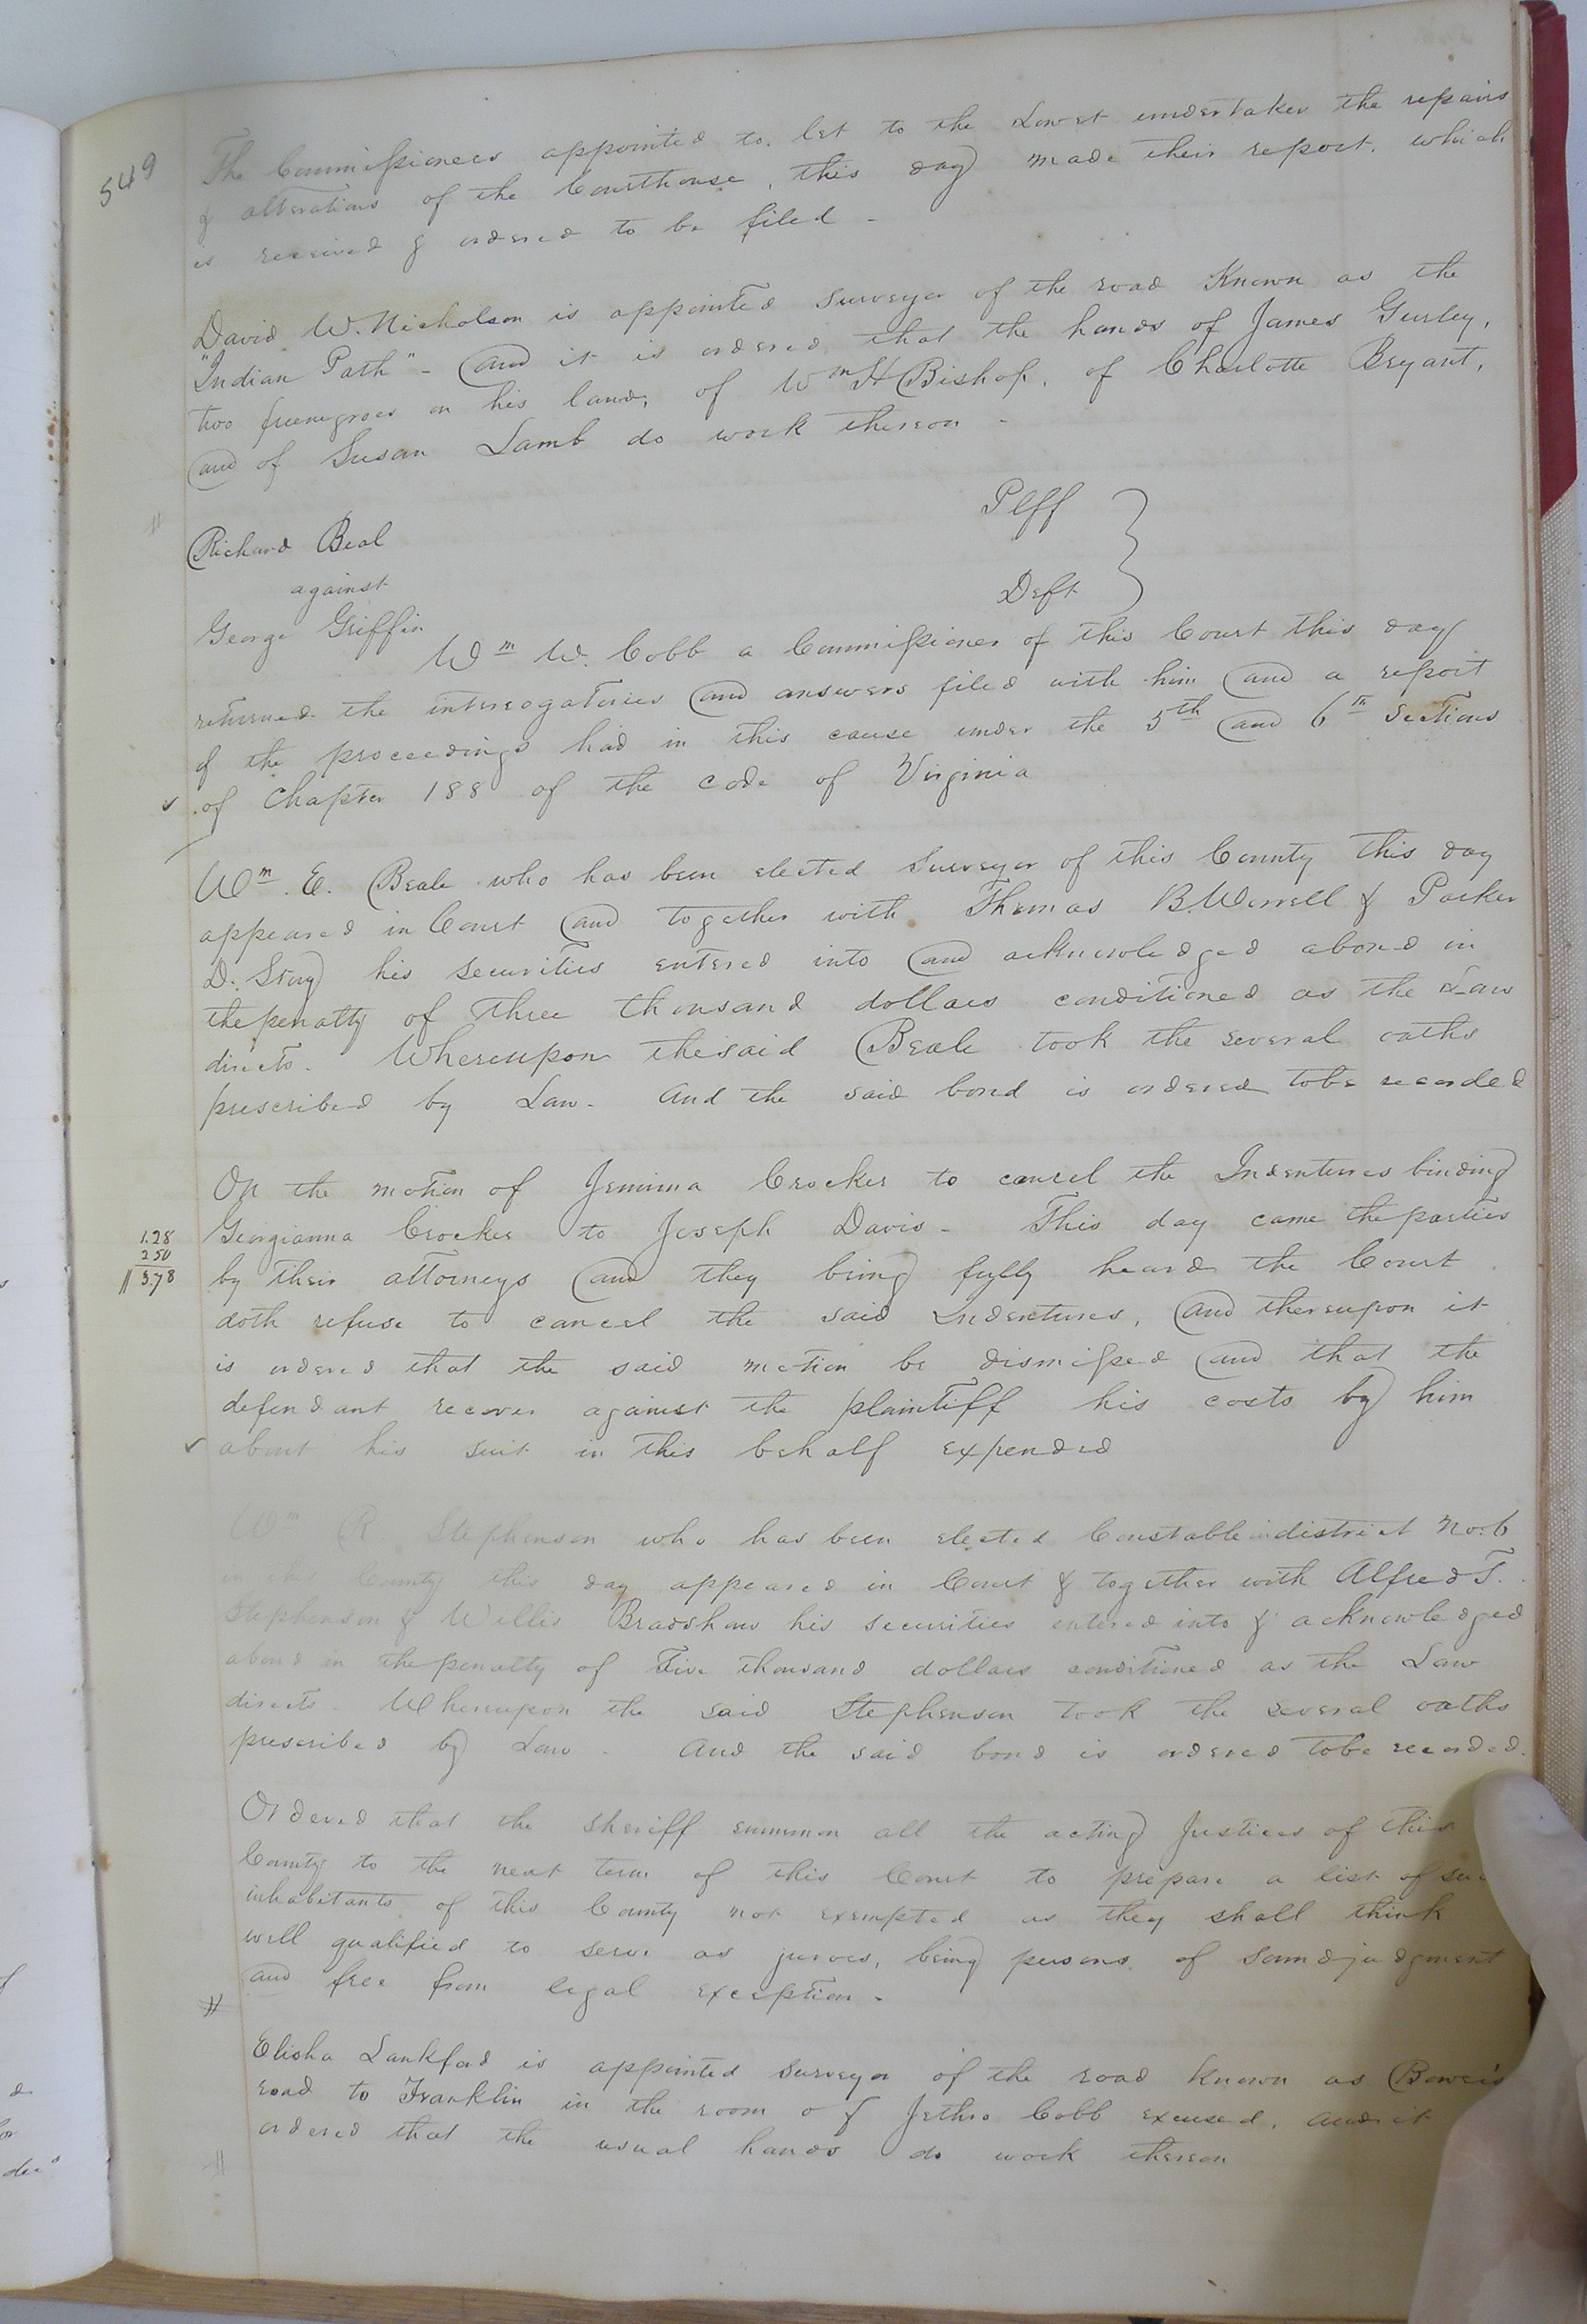 549
The Commissioners appointed to let to the Lowest undertaker the repairs
& alterations of the Courthouse, this day made their report, which
is received & ordered to be filed -
David W. Nicholson is appointed Surveyor of the road Known as the
"Indian Path" - and it is ordered that the hands of James Gurley,
two freenegroes on his land, of Wm H Bishop, of Charlotte Bryant,
and of Susan Lamb do work thereon -
Richard Beal Plff
against
George Griffin Deft
Wm W. Cobb a Commissioner of this Court this day
returned the interrogatories and answers filed with him and a report
of the proceedings had in this cause under the 5th and 6th Sections
of Chapter 188 of the code of Virginia
Wm. E. Beale who has been elected Surveyor of this County this day
appeared in Court and together with Thomas B. Worrell & Parker
D. Story his securities entered into and acknowledged abond in
the penalty of three thousand dollars conditioned as the Law
directs. Whereupon thesaid Beale took the several oaths
prescribed by Law. And the said bond is ordered tobe recorded
On the motion of Jemima Crocker to cancel the Indentures binding
1.28 Georgianna Crocker to Joseph Davis - This day came the parties
2 50
|| 3.78 by their attorneys and they being fully heard the Court
doth refuse to cancel the said Indentures, and thereupon it
is ordered that the said motion be dismissed and that the
defendant recover against the plaintiff his costs by him
about his suit in this behalf expended
Wm R. Stephenson who has been elected Constable in district No. 6
in this County this day appeared in Court & together with Alfred T.
Stephenson & Willis Bradshaw his securities entered into & acknowledged
abond in the penalty of Five thousand dollars conditioned as the Law
directs - Whereupon the said Stephenson took the several oaths
prescribed by Law. And the said bond is ordered tobe recorded.
Ordered that the Sheriff summon all the acting Justices of this
County to the next term of this Court to prepare a list of
inhabitants of this County not exempted as they shall think
well qualified to serve as jurors, being persons of sound judgment
and free from legal exception -
Elisha Lankford is appointed Surveyor of the road known as
road to Franklin in the room of Jethro Cobb excused, and it
ordered that the usual hands do work thereon